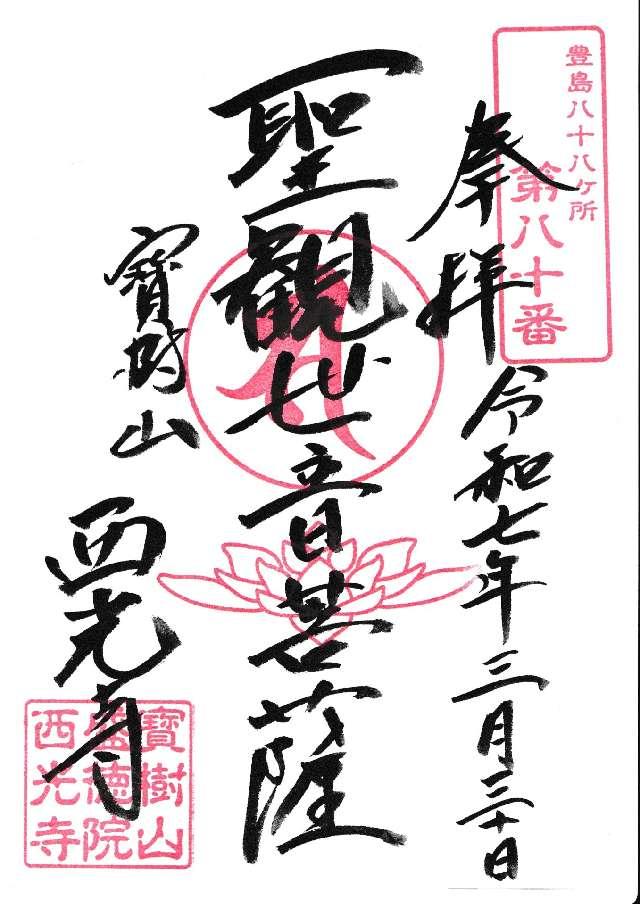 豊島八十八ヶ所
第八十番
奉拝
令和七年三月三十日
聖観世音菩薩
寳樹山
西光寺
寳樹山
盛徳院
西光寺